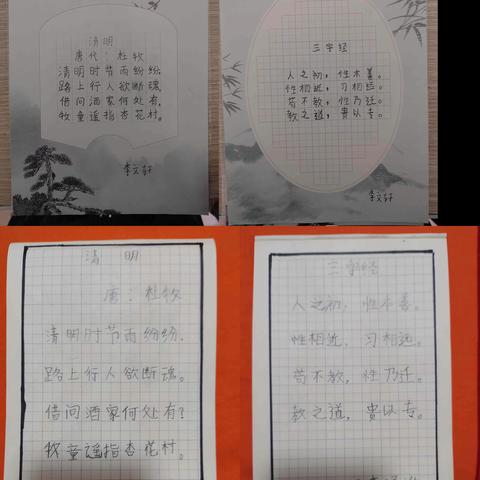 清明
唐代：杜牧
清明时节雨纷纷，
路上行人欲断魂。
借问酒家何处有，
牧童遥指杏花村。
李文轩
三字经
人之初，性本善。
性相近，习相远。
苟不教，性乃迁。
教之道，贵以专。
李文轩
清明
唐：杜牧
清明时节雨纷纷，
路上行人欲断魂。
借问酒家何处有？
牧童遥指杏花村。
三字经
人之初，性本善。
性相近，习相远。
苟不教，性乃迁。
教之道，贵以专。